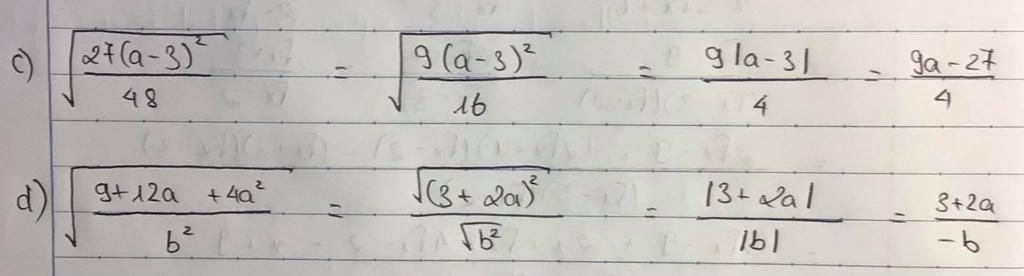 c) √(27(a-3)²/48) = √(9(a-3)²/16) = 9|a-3|/4 = (9a-27)/4
d) √((9+12a+4a²)/b²) = √(3+2a)²/√b² = |3+2a|/|b| = (3+2a)/(-b)